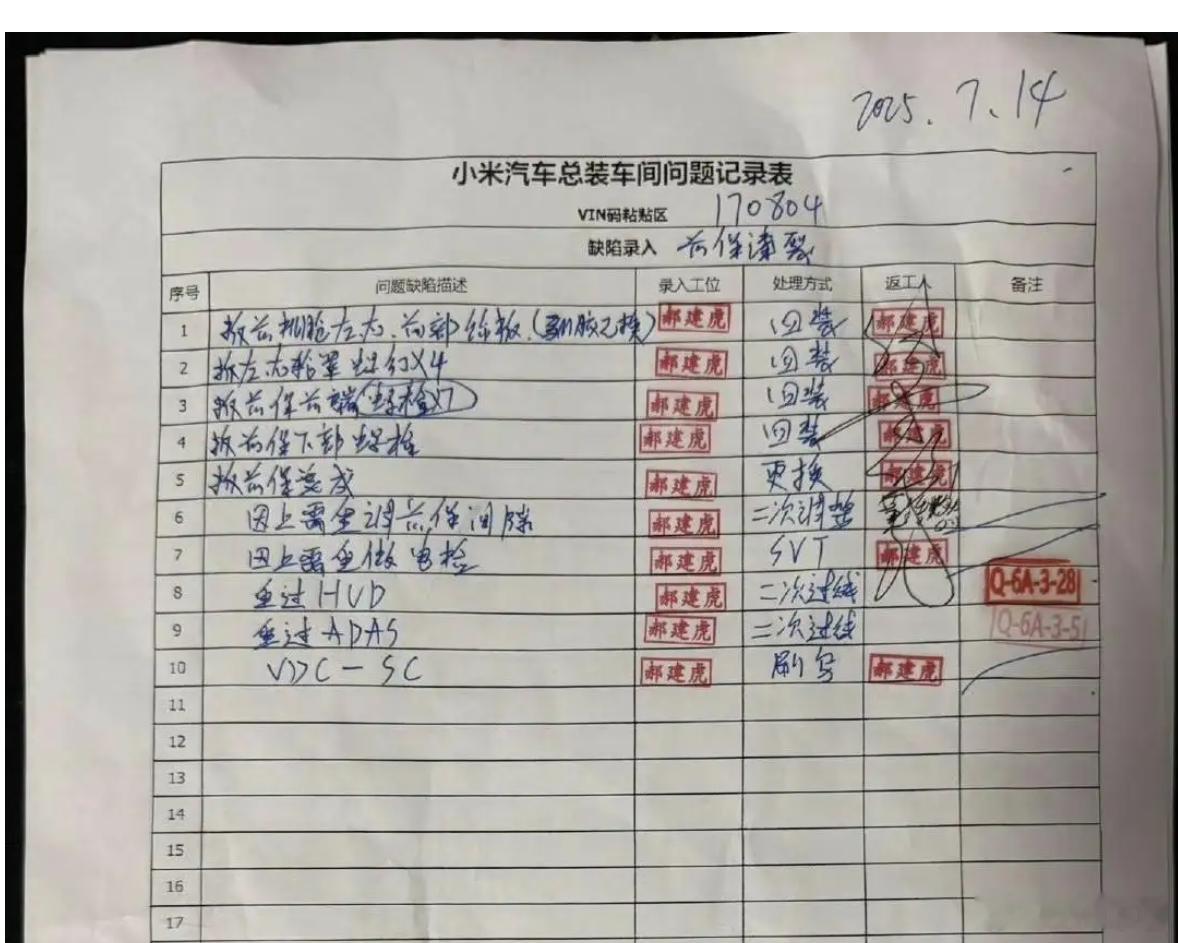 2025.7.14
小米汽车总装车间问题记录表
VIN码粘贴区 170804
缺陷录入 前保漆裂
序号 问题缺陷描述 录入工位 处理方式 返工人 备注
1 拆前机舱左右、前部饰板(已换) 郝建虎 回装 郝建虎
2 拆左右轮罩螺钉X4 郝建虎 回装 郝建虎
3 拆前保前端螺栓X7 郝建虎 回装 郝建虎
4 拆前保下部螺栓 郝建虎 回装 郝建虎
5 拆前保总成 郝建虎 更换 郝建虎
6 因上需重调前保间隙 郝建虎 二次调整
7 因上需重做电检 郝建虎 SVT 郝建虎
8 重过HUD 郝建虎 二次过线 Q-6A-3-28
9 重过ADAS 郝建虎 二次过线 Q-6A-3-5
10 VDC-SC 郝建虎 刷写 郝建虎
11
12
13
14
15
16
17